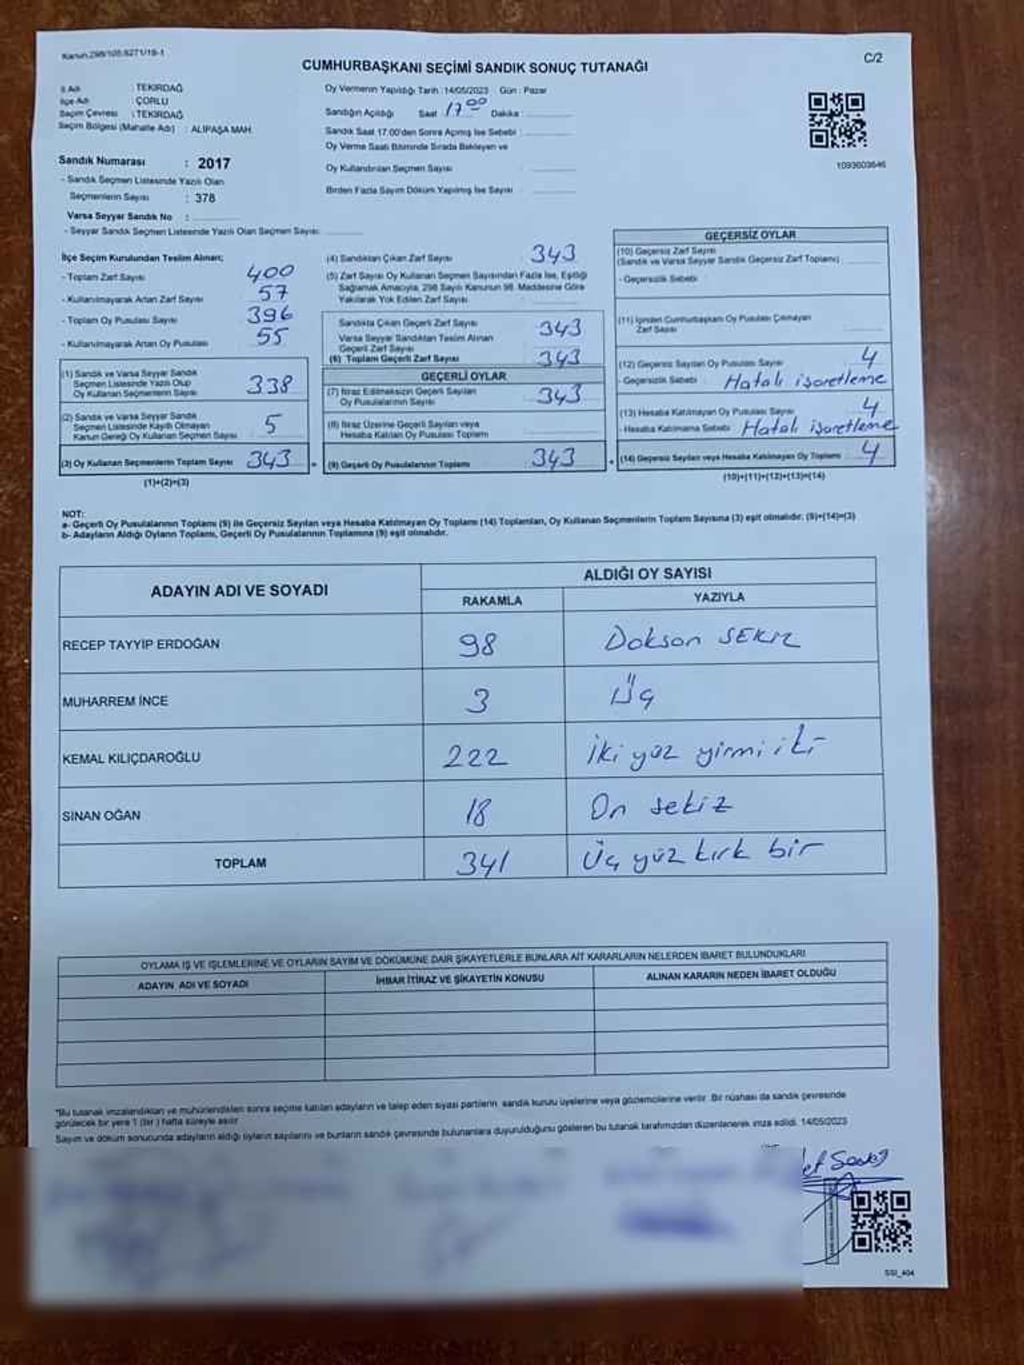 Kanun.298/105.6271/19-1
C/2
CUMHURBAŞKANI SEÇİMİ SANDIK SONUÇ TUTANAĞI
İl Adı : TEKİRDAĞ
İlçe Adı : ÇORLU
Seçim Çevresi : TEKİRDAĞ
Seçim Bölgesi (Mahalle Adı) : ALİPAŞA MAH.
Sandık Numarası : 2017
- Sandık Seçmen Listesinde Yazılı Olan
Seçmenlerin Sayısı : 378
Varsa Seyyar Sandık No :
- Seyyar Sandık Seçmen Listesinde Yazılı Olan Seçmen Sayısı:
Oy Vermenin Yapıldığı Tarih : 14/05/2023 Gün : Pazar
Sandığın Açıldığı Saat 17 00 Dakika :
Sandık Saat 17:00'den Sonra Açılmış İse Sebebi :
Oy Verme Saati Bitiminde Sırada Bekleyen ve
Oy Kullandırılan Seçmen Sayısı :
Birden Fazla Sayım Döküm Yapılmış İse Sayısı :
1093603646
İlçe Seçim Kurulundan Teslim Alınan;
- Toplam Zarf Sayısı 400
- Kullanılmayarak Artan Zarf Sayısı 57
- Toplam Oy Pusulası Sayısı 396
- Kullanılmayarak Artan Oy Pusulası 55
(1) Sandık ve Varsa Seyyar Sandık
Seçmen Listesinde Yazılı Olup
Oy Kullanan Seçmenlerin Sayısı 338
(2) Sandık ve Varsa Seyyar Sandık
Seçmen Listesinde Kayıtlı Olmayan
Kanun Gereği Oy Kullanan Seçmen Sayısı 5
(3) Oy Kullanan Seçmenlerin Toplam Sayısı 343
(1)+(2)=(3)
(4) Sandıktan Çıkan Zarf Sayısı 343
(5) Zarf Sayısı Oy Kullanan Seçmen Sayısından Fazla İse, Eşitliği
Sağlamak Amacıyla, 298 Sayılı Kanunun 98. Maddesine Göre
Yakılarak Yok Edilen Zarf Sayısı
Sandıkta Çıkan Geçerli Zarf Sayısı 343
Varsa Seyyar Sandıktan Teslim Alınan
Geçerli Zarf Sayısı
(6) Toplam Geçerli Zarf Sayısı 343
GEÇERLİ OYLAR
(7) İtiraz Edilmeksizin Geçerli Sayılan
Oy Pusulalarının Sayısı 343
(8) İtiraz Üzerine Geçerli Sayılan veya
Hesaba Katılan Oy Pusulası Toplamı
(9) Geçerli Oy Pusulalarının Toplamı 343
GEÇERSİZ OYLAR
(10) Geçersiz Zarf Sayısı
(Sandık ve Varsa Seyyar Sandık Geçersiz Zarf Toplamı)
- Geçersizlik Sebebi
(11) İçinden Cumhurbaşkanı Oy Pusulası Çıkmayan
Zarf Sayısı
(12) Geçersiz Sayılan Oy Pusulası Sayısı 4
- Geçersizlik Sebebi Hatalı işaretleme
(13) Hesaba Katılmayan Oy Pusulası Sayısı 4
- Hesaba Katılmama Sebebi Hatalı işaretleme
(14) Geçersiz Sayılan veya Hesaba Katılmayan Oy Toplamı 4
(10)+(11)+(12)+(13)=(14)
NOT:
a- Geçerli Oy Pusulalarının Toplamı (9) ile Geçersiz Sayılan veya Hesaba Katılmayan Oy Toplamı (14) Toplamları, Oy Kullanan Seçmenlerin Toplam Sayısına (3) eşit olmalıdır. (9)+(14)=(3)
b- Adayların Aldığı Oyların Toplamı, Geçerli Oy Pusulalarının Toplamına (9) eşit olmalıdır.
ADAYIN ADI VE SOYADI
ALDIĞI OY SAYISI
RAKAMLA YAZIYLA
RECEP TAYYİP ERDOĞAN 98 Doksan SEKİZ
MUHARREM İNCE 3 Üç
KEMAL KILIÇDAROĞLU 222 iki yüz yirmi iki
SİNAN OĞAN 18 On sekiz
TOPLAM 341 Üç yüz kırk bir
OYLAMA İŞ VE İŞLEMLERİNE VE OYLARIN SAYIM VE DÖKÜMÜNE DAİR ŞİKAYETLERLE BUNLARA AİT KARARLARIN NELERDEN İBARET BULUNDUKLARI
ADAYIN ADI VE SOYADI İHBAR İTİRAZ VE ŞİKAYETİN KONUSU ALINAN KARARIN NEDEN İBARET OLDUĞU
"Bu tutanak imzalandıktan ve mühürlendikten sonra seçime katılan adayların ve talep eden siyasi partilerin, sandık kurulu üyelerine veya gözlemcilerine verilir. Bir nüshası da sandık çevresinde
görülecek bir yere 1 (bir) hafta süreyle asılır.
Sayım ve döküm sonucunda adayların aldığı oyların sayılarını ve bunların sandık çevresinde bulunanlara duyurulduğunu gösteren bu tutanak tarafımızdan düzenlenerek imza edildi. 14/05/2023
SSI_404